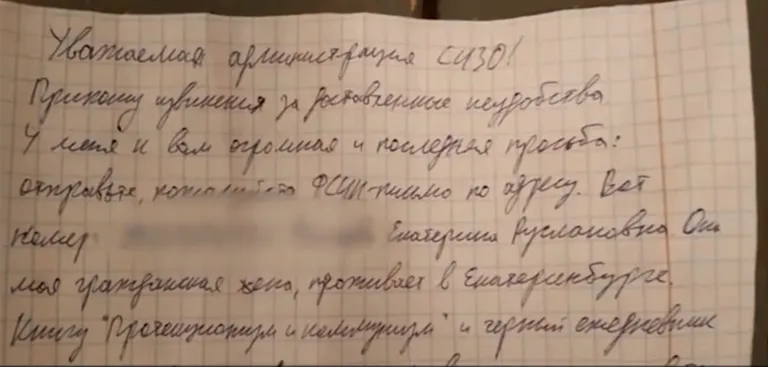 Уважаемая администрация СИЗО!
Приношу извинения за доставленные неудобства
У меня к вам огромная и последняя просьба:
отправьте, пожалуйста ФСИН-письмо по адресу. Вот
номер Екатерина Руслановна Она
моя гражданская жена, проживает в Екатеринбурге.
Книгу "Протекционизм и коммунизм" и черный ежедневник